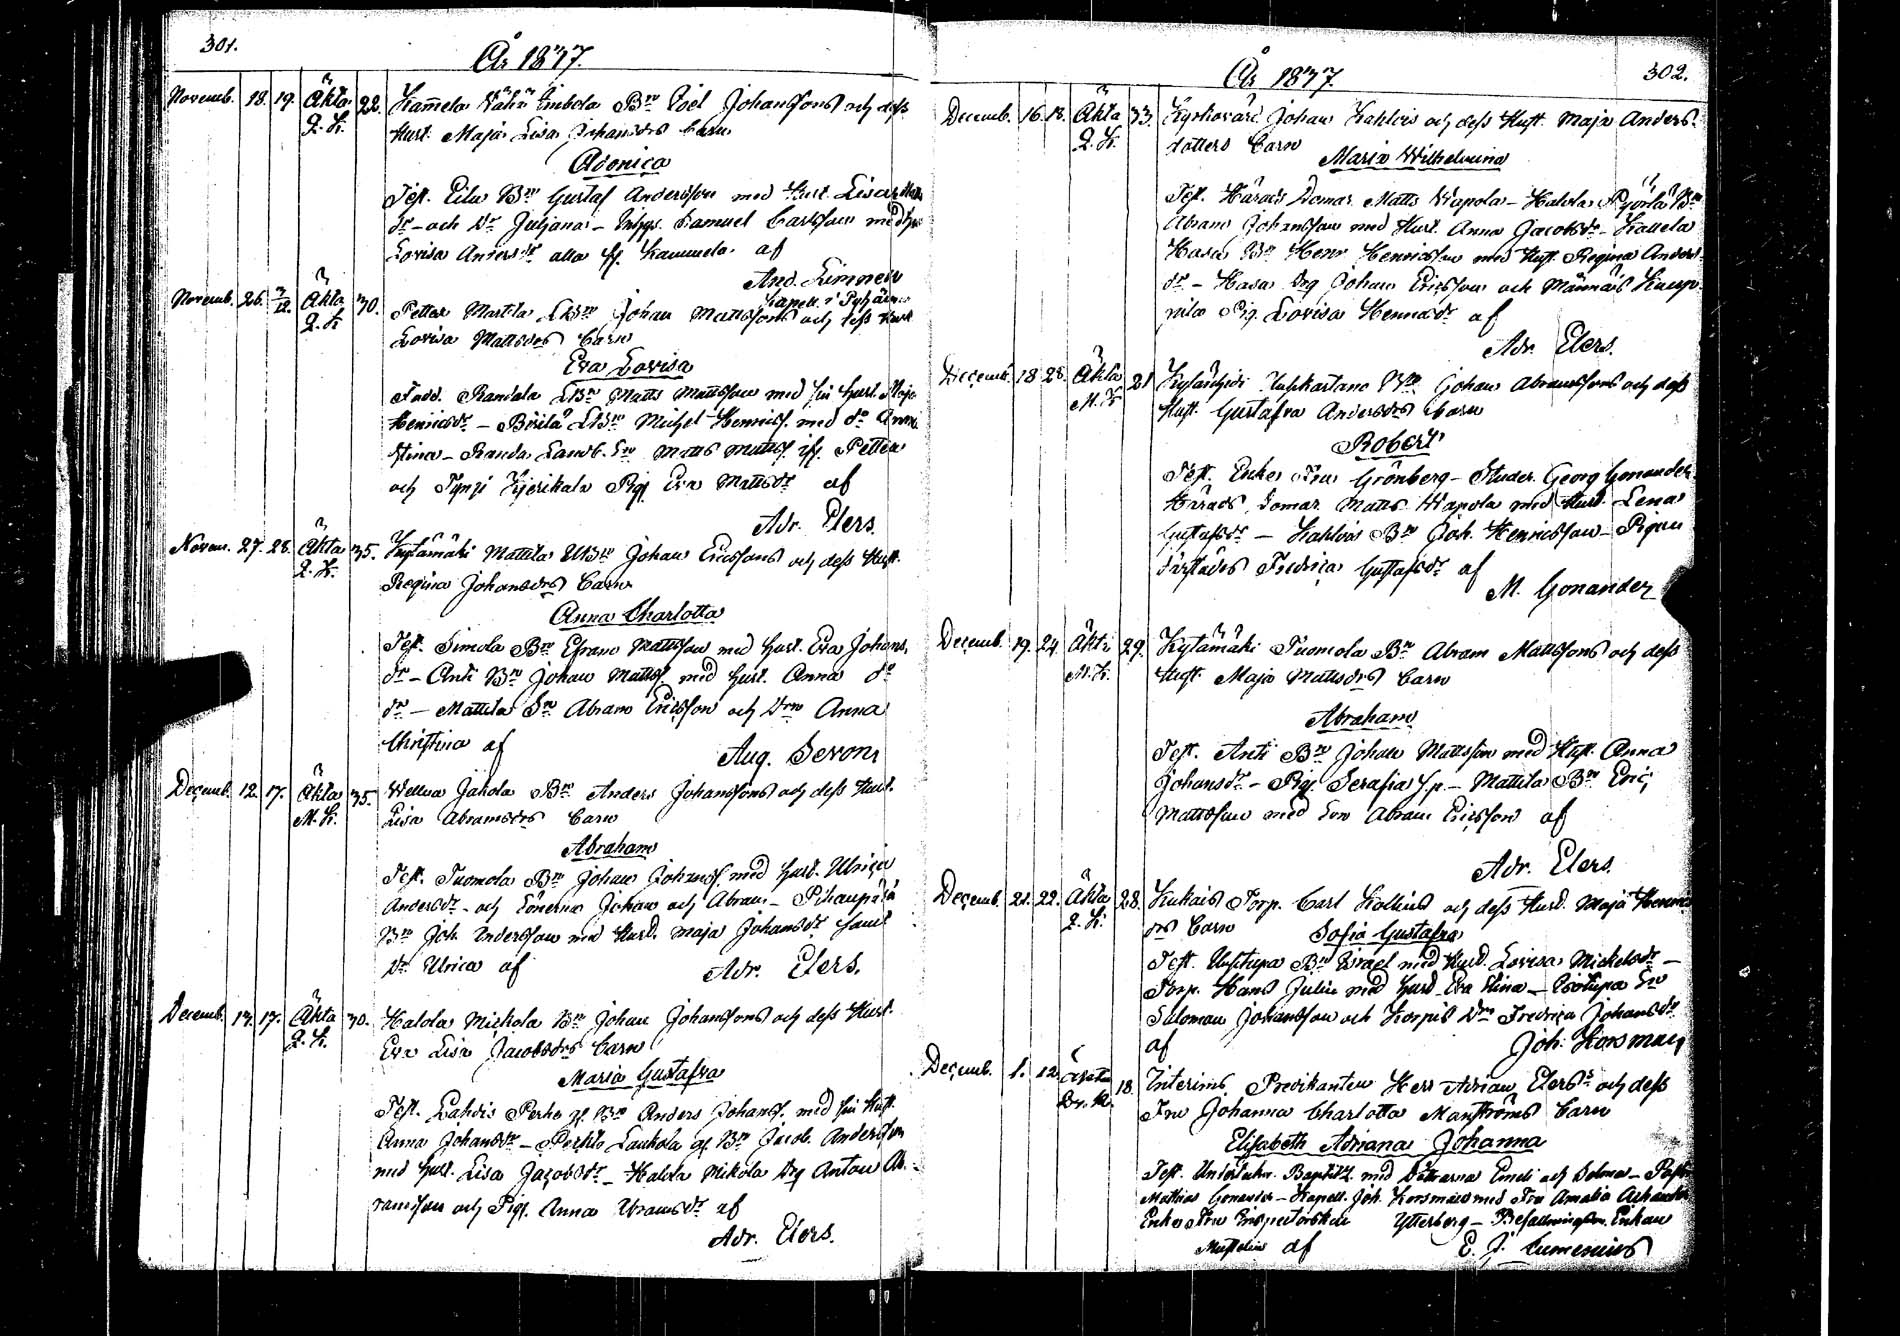 301.
År 1877.
Novemb. 18. 19. Äkta 22. Kamela Vähä Embola Bn Joel Johanssons och dess
Q. K. Hust. Maja Lisa Johansdrs barn
Adonica
Test. Eila Bn Gustaf Andersson med Hust. Lisa
dr - och Dr Juljana - Samuel Carlsson med
Lovisa Andersdr alla fr. Kamela af
And. Limnen
Kapell. i Pyhäma
Novemb. 26. 3/12. Äkta 30. Petter Marttila LBn Johan Mattssons och dess Hust
Q. K Lovisa Mattsdrs barn
Eva Lovisa
Fadd. Randala LBn Matts Mattsson med sin Hust. Maja
Henricsdr - Börilä LBn Michel Henricss. med do Anna
Stina - Randa Landb. Sn Matts Mattss. ifr. Pettea
och Kjerikala Pig. Eva Mattsdr af
Adr. Elers.
Novem. 27. 28. Äkta 35. Kytämäki Mattila UBn Johan Ericssons och dess Hust.
Q. K. Regina Johansdrs barn
Anna Charlotta
Test. Simola Bn Efraim Mattsson med Hust. Eva Johans
dr - Anti Bn Johan Mattss. med Hust. Anna do
dr - Mattila Sn Abram Ericsson och Drn Anna
Christina af
Aug. Sevon
Decemb. 12. 17. Äkta 35. Wellua Jakola Bn Anders Johanssons och dess Hust.
M. K. Lisa Abramsdrs barn
Abraham
Test. Tuomola Bn Johan Johanss. med Hust. Ulrica
Andersdr - och Sönerna Johan och Abram -
Bn Joh. Andersson med Hust. Maja Johansdr samt
Dr Ulrica af
Adr. Elers.
Decemb. 13. 17. Äkta 30. Kalola Mickola Bn Johan Johanssons och dess Hust.
Q. K. Eva Lisa Jacobsdrs barn
Maria Gustafva
Test. Lahdis Perho gl. Bn Anders Johanss. med sin Hust.
Anna Johansdr - Perhlo Laukola gl Bn Jacob Andersson
med Hust. Lisa Jacobsdr - Kalola Mikola Drg Anton Ab-
ramsson och Pig. Anna Abramsdr af
Adr. Elers.
302.
År 1877.
Decemb. 16. 18. Äkta 33. Kyrkovärd Johan Kahlvis och dess Hust. Maja Anders-
Q. K. dotters barn
Maria Wilhelmina
Test. Härads Domar. Matts Wapola - Kalola Pyörlä Bn
Abram Johansson med Hust. Anna Jacobsdr - Kallela
Kasa Bn Henr. Henricsson med Hust. Regina Anders
dr - Kasa Drg Johan Ericsson och Männäis
Pig. Lovisa Henricsdr af
Adr. Elers.
Decemb. 18 28. Äkta 21 Bn Johan Abramssons och dess
M. K Hust. Gustafva Andersdrs barn
Robert
Test. Enke Fru Grönberg - Studer. Georg Gonander
Härads Domar. Matts Wapola med Hust. Lena
Gustafsdr - Kahlvis Bn Joh. Henricsson - Pigan
Fredrica Gustafsdr af
M. Gonander
Decemb. 19. 24. Äkta 29. Kytämäki Tuomola Bn Abram Mattssons och dess
M. K. Hust. Maja Mattsdrs barn
Abraham
Test. Anti Bn Johan Mattsson med Hust. Anna
Johansdr - Pig. Serafia - Mattila Bn Eric
Mattsson med Sn Abram Ericsson af
Adr. Elers.
Decemb. 21. 22. Äkta 28. Kukais Torp. Carl Kollins och dess Hust. Maja Henrics
Q. K. drs barn Sofia Gustafva
Test. Uusitupa Bn Israel med Hust. Lovisa Mickelsdr -
Torp. Hans Julin med Hust. Eva Stina - Isotupa Sn
Salomon Johansson och Korpis Drn Fredrica Johansdr
af Joh. Korsman
Decemb. 1. 12. Äkta 18. Interims Predikanten Herr Adrian Elers's och dess
Fru Johanna Charlotta Manströms barn
Elisabeth Adriana Johanna
Test. med Döttrarna Emeli och Selma -
Mathias Gonander - Kapell. Joh. Korsman med Fru Amalia
Enke Fru Inspectorskan Ytterberg - Enkan
af E. J. Cumenius